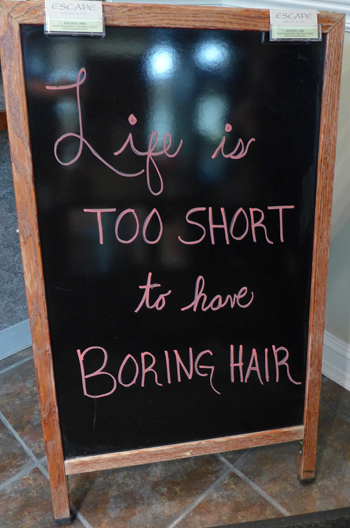 ESCAPE
ESCAPE
Life is
TOO SHORT
to have
BORING HAIR